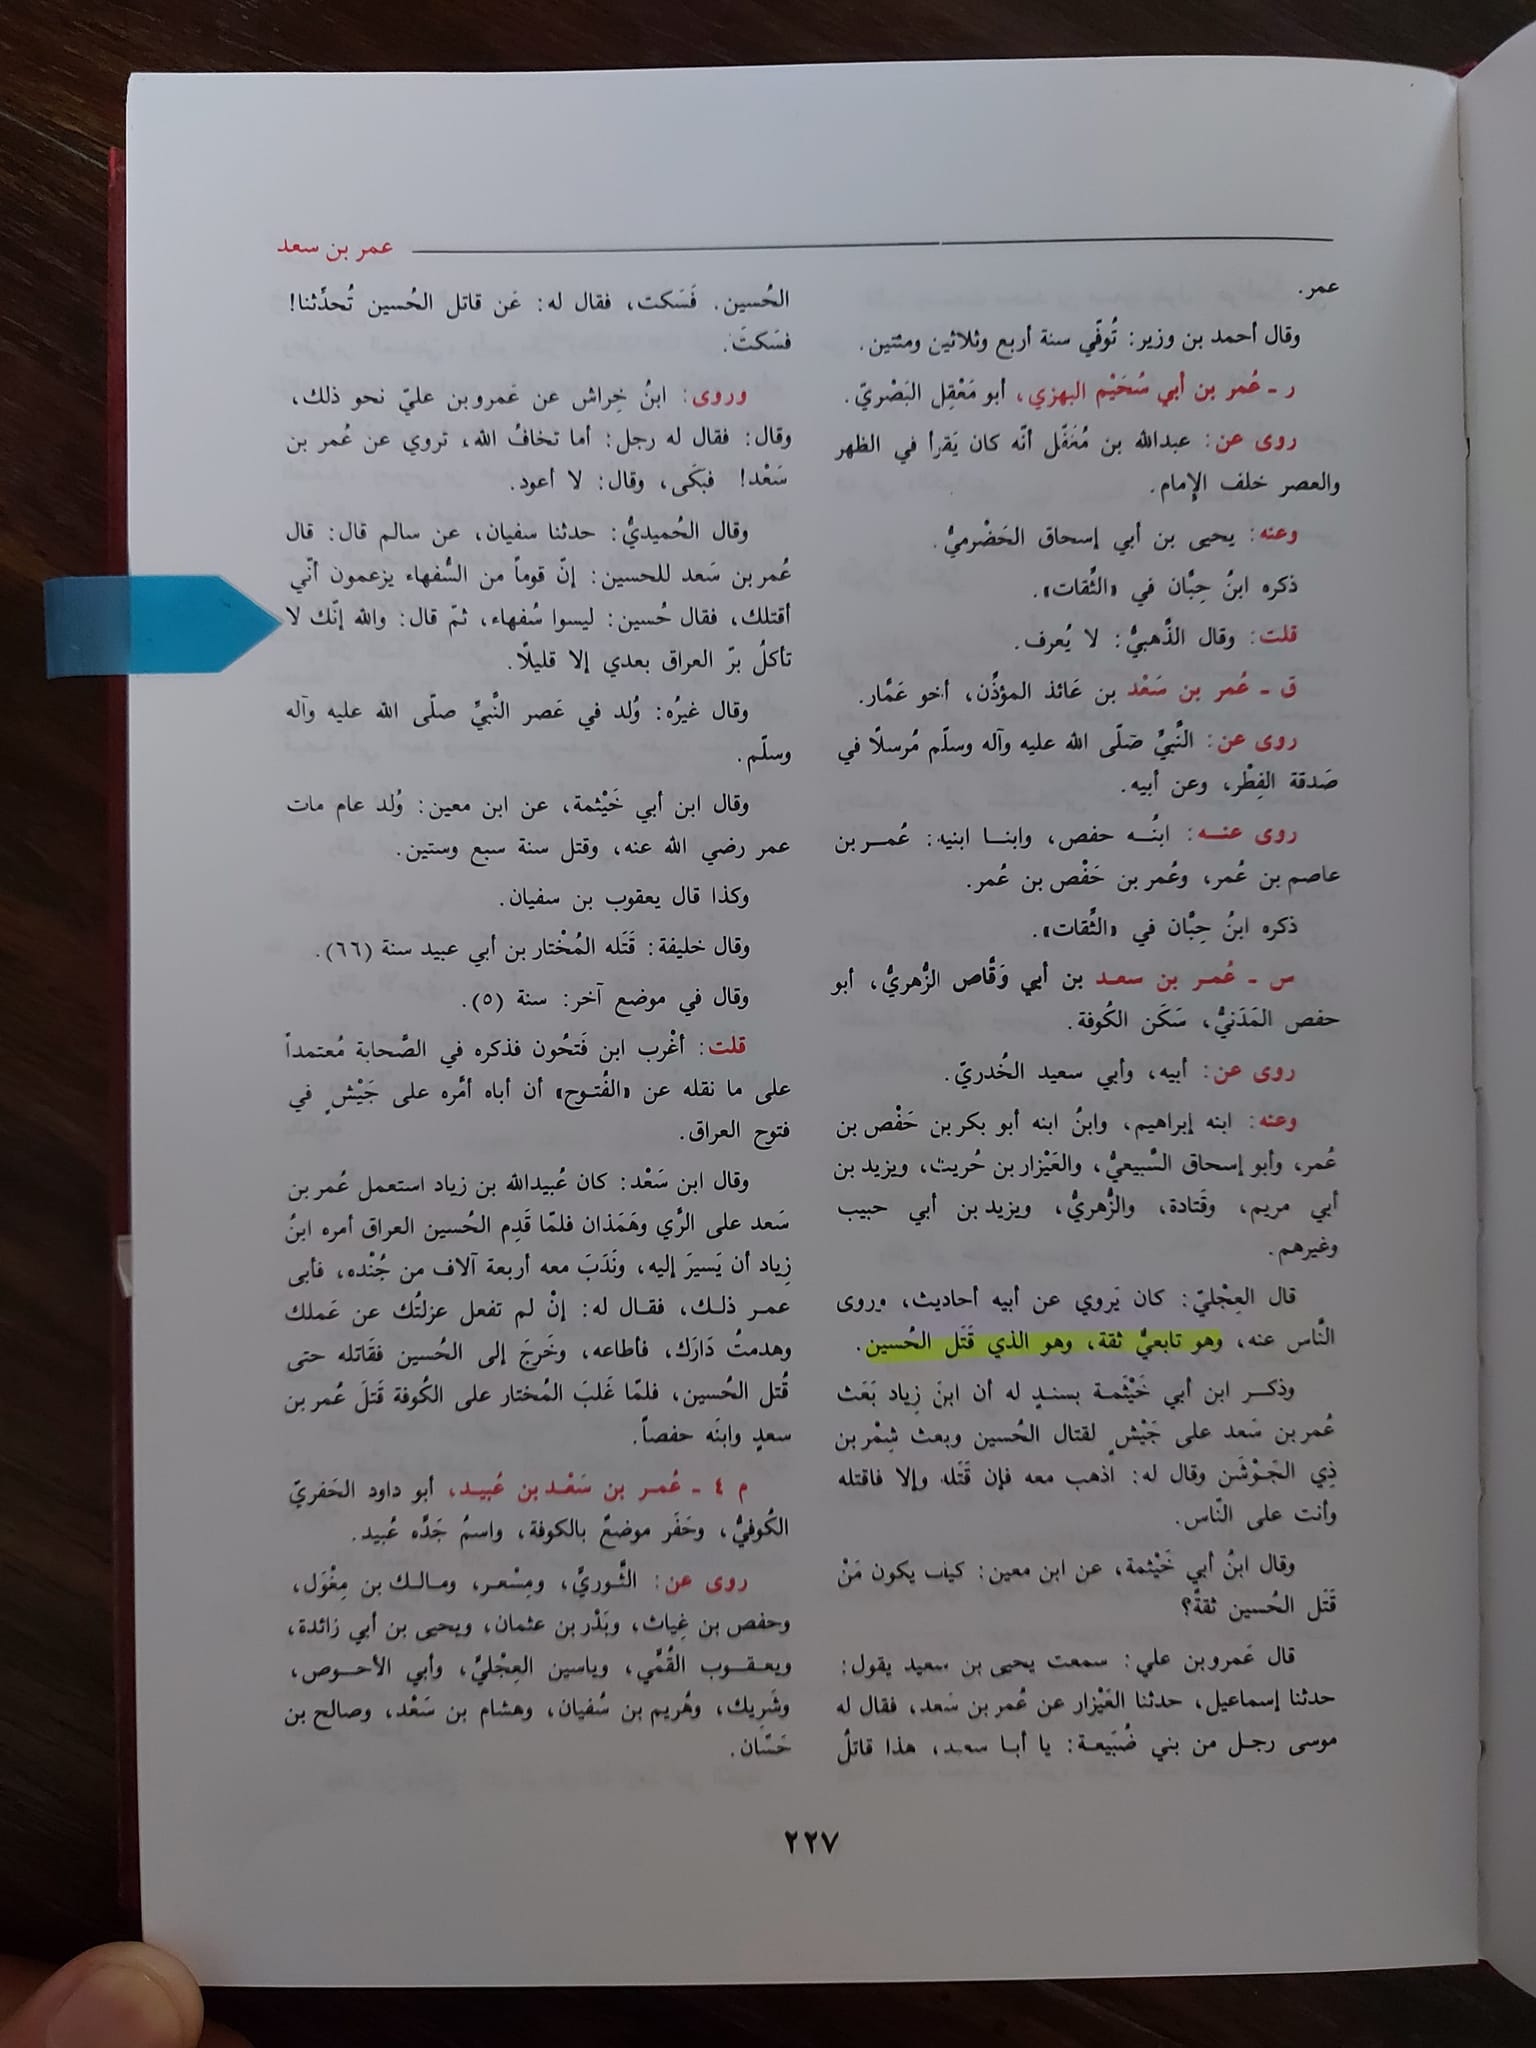 عمر بن سعد
عمر.
وقال أحمد بن وزير: تُوفّي سنة أربع وثلاثين ومئتين.
ر ـ عُمر بن أبي سُحَيْم البهزي، أبو مَعْقِل البَصْريّ.
روى عن: عبدالله بن مُغَفَّل أنّه كان يَقرأ في الظهر
والعصر خلف الإمام.
وعنه: يحيى بن أبي إسحاق الحَضْرميُّ.
ذكره ابنُ حِبَّان في «الثِّقات».
قلت: وقال الذَّهبيُّ: لا يُعرف.
ق ـ عُمر بن سَعْد بن عَائذ المؤذِّن، أخو عَمَّار.
روى عن: النَّبيِّ صَلّى الله عليه وآله وسلّم مُرسلًا في
صَدقة الفِطْر، وعن أبيه.
روى عنه: ابنُه حفص، وابنا ابنيه: عُمر بن
عاصم بن عُمر، وعُمر بن حَفْص بن عُمر.
ذكره ابنُ حِبَّان في «الثِّقات».
س ـ عُمر بن سعد بن أبي وَقَّاص الزُّهريُّ، أبو
حفص المَدَنيُّ، سَكَن الكُوفة.
روى عن: أبيه، وأبي سعيد الخُدريّ.
وعنه: ابنه إبراهيم، وابنُ ابنه أبو بكر بن حَفْص بن
عُمر، وأبو إسحاق السَّبيعيُّ، والعَيْزار بن حُريث، ويزيد بن
أبي مريم، وقَتادة، والزُّهريُّ، ويزيد بن أبي حبيب
وغيرهم.
قال العِجْليّ: كان يَروي عن أبيه أحاديث، وروى
النَّاس عنه، وهو تابعيٌّ ثقة، وهو الذي قَتَل الحُسين.
وذكر ابن أبي خَيْثَمة بسندٍ له أن ابنَ زِياد بَعَث
عُمر بن سَعد على جَيْشٍ لقتال الحُسين وبعث شِمْر بن
ذِي الجَوْشَن وقال له: اذهب معه فإن قَتَله وإلا فاقتله
وأنت على النّاس.
وقال ابنُ أبي خَيْثمة، عن ابن معين: كيف يكون مَنْ
قَتَل الحُسين ثقةً؟
قال عَمرو بن علي: سمعت يحيى بن سعيد يقول:
حدثنا إسماعيل، حدثنا العَيْزار عن عُمر بن سَعد، فقال له
موسى رجل من بني ضُبَيعة: يا أبا سعيد، هذا قاتلُ
الحُسين. فَسَكت، فقال له: عَن قاتل الحُسين تُحدِّثنا!
فسَكتَ.
وروى: ابنُ خِراش عن عَمرو بن عليّ نحو ذلك،
وقال: فقال له رجل: أما تخافُ الله، تروي عن عُمر بن
سَعْد! فبَكَى، وقال: لا أعود.
وقال الحُميديُّ: حدثنا سفيان، عن سالم قال: قال
عُمر بن سَعد للحسين: إنّ قوماً من السُّفهاء يزعمون أنّي
أقتلك، فقال حُسين: ليسوا سُفهاء، ثمّ قال: والله إنّك لا
تأكلُ برّ العراق بعدي إلا قليلًا.
وقال غيرُه: وُلد في عَصر النَّبيِّ صلّى الله عليه وآله
وسلّم.
وقال ابن أبي خَيْثمة، عن ابن معين: وُلد عام مات
عمر رضي الله عنه، وقتل سنة سبع وستين.
وكذا قال يعقوب بن سفيان.
وقال خليفة: قَتَله المُخْتار بن أبي عبيد سنة (٦٦).
وقال في موضع آخر: سنة (٥).
قلت: أغْرب ابن فَتحُون فذكره في الصَّحابة مُعتمداً
على ما نقله عن «الفُتوح» أن أباه أمَّره على جَيْشٍ في
فتوح العراق.
وقال ابن سَعْد: كان عُبيدالله بن زياد استعمل عُمر بن
سَعد على الرَّي وهَمَذان فلمّا قَدِم الحُسين العراق أمره ابنُ
زِياد أن يَسيرَ إليه، ونَدَبَ معه أربعة آلاف من جُنْده، فأبى
عمر ذلك، فقال له: إنْ لم تفعل عزلتُك عن عَملك
وهدمتُ دَارَك، فأطاعه، وخَرجَ إلى الحُسين فقَاتله حتى
قُتل الحُسين، فلمّا غَلبَ المُختار على الكُوفة قَتلَ عُمر بن
سعدٍ وابنَه حفصاً.
م ٤ ـ عُمر بن سَعْد بن عُبيد، أبو داود الحَفَريّ
الكُوفيُّ، وحَفَر موضعٌ بالكوفة، واسمُ جَدّه عُبيد.
روى عن: الثَّوريِّ، ومِسْعر، ومالك بن مِغْوَل،
وحفص بن غِياث، وبَدْر بن عثمان، ويحيى بن أبي زائدة،
ويعقوب القُمِّي، وياسين العِجْليِّ، وأبي الأحوص،
وشَرِيك، وهُريم بن سُفيان، وهشام بن سَعْد، وصالح بن
حَسّان.
٢٢٧